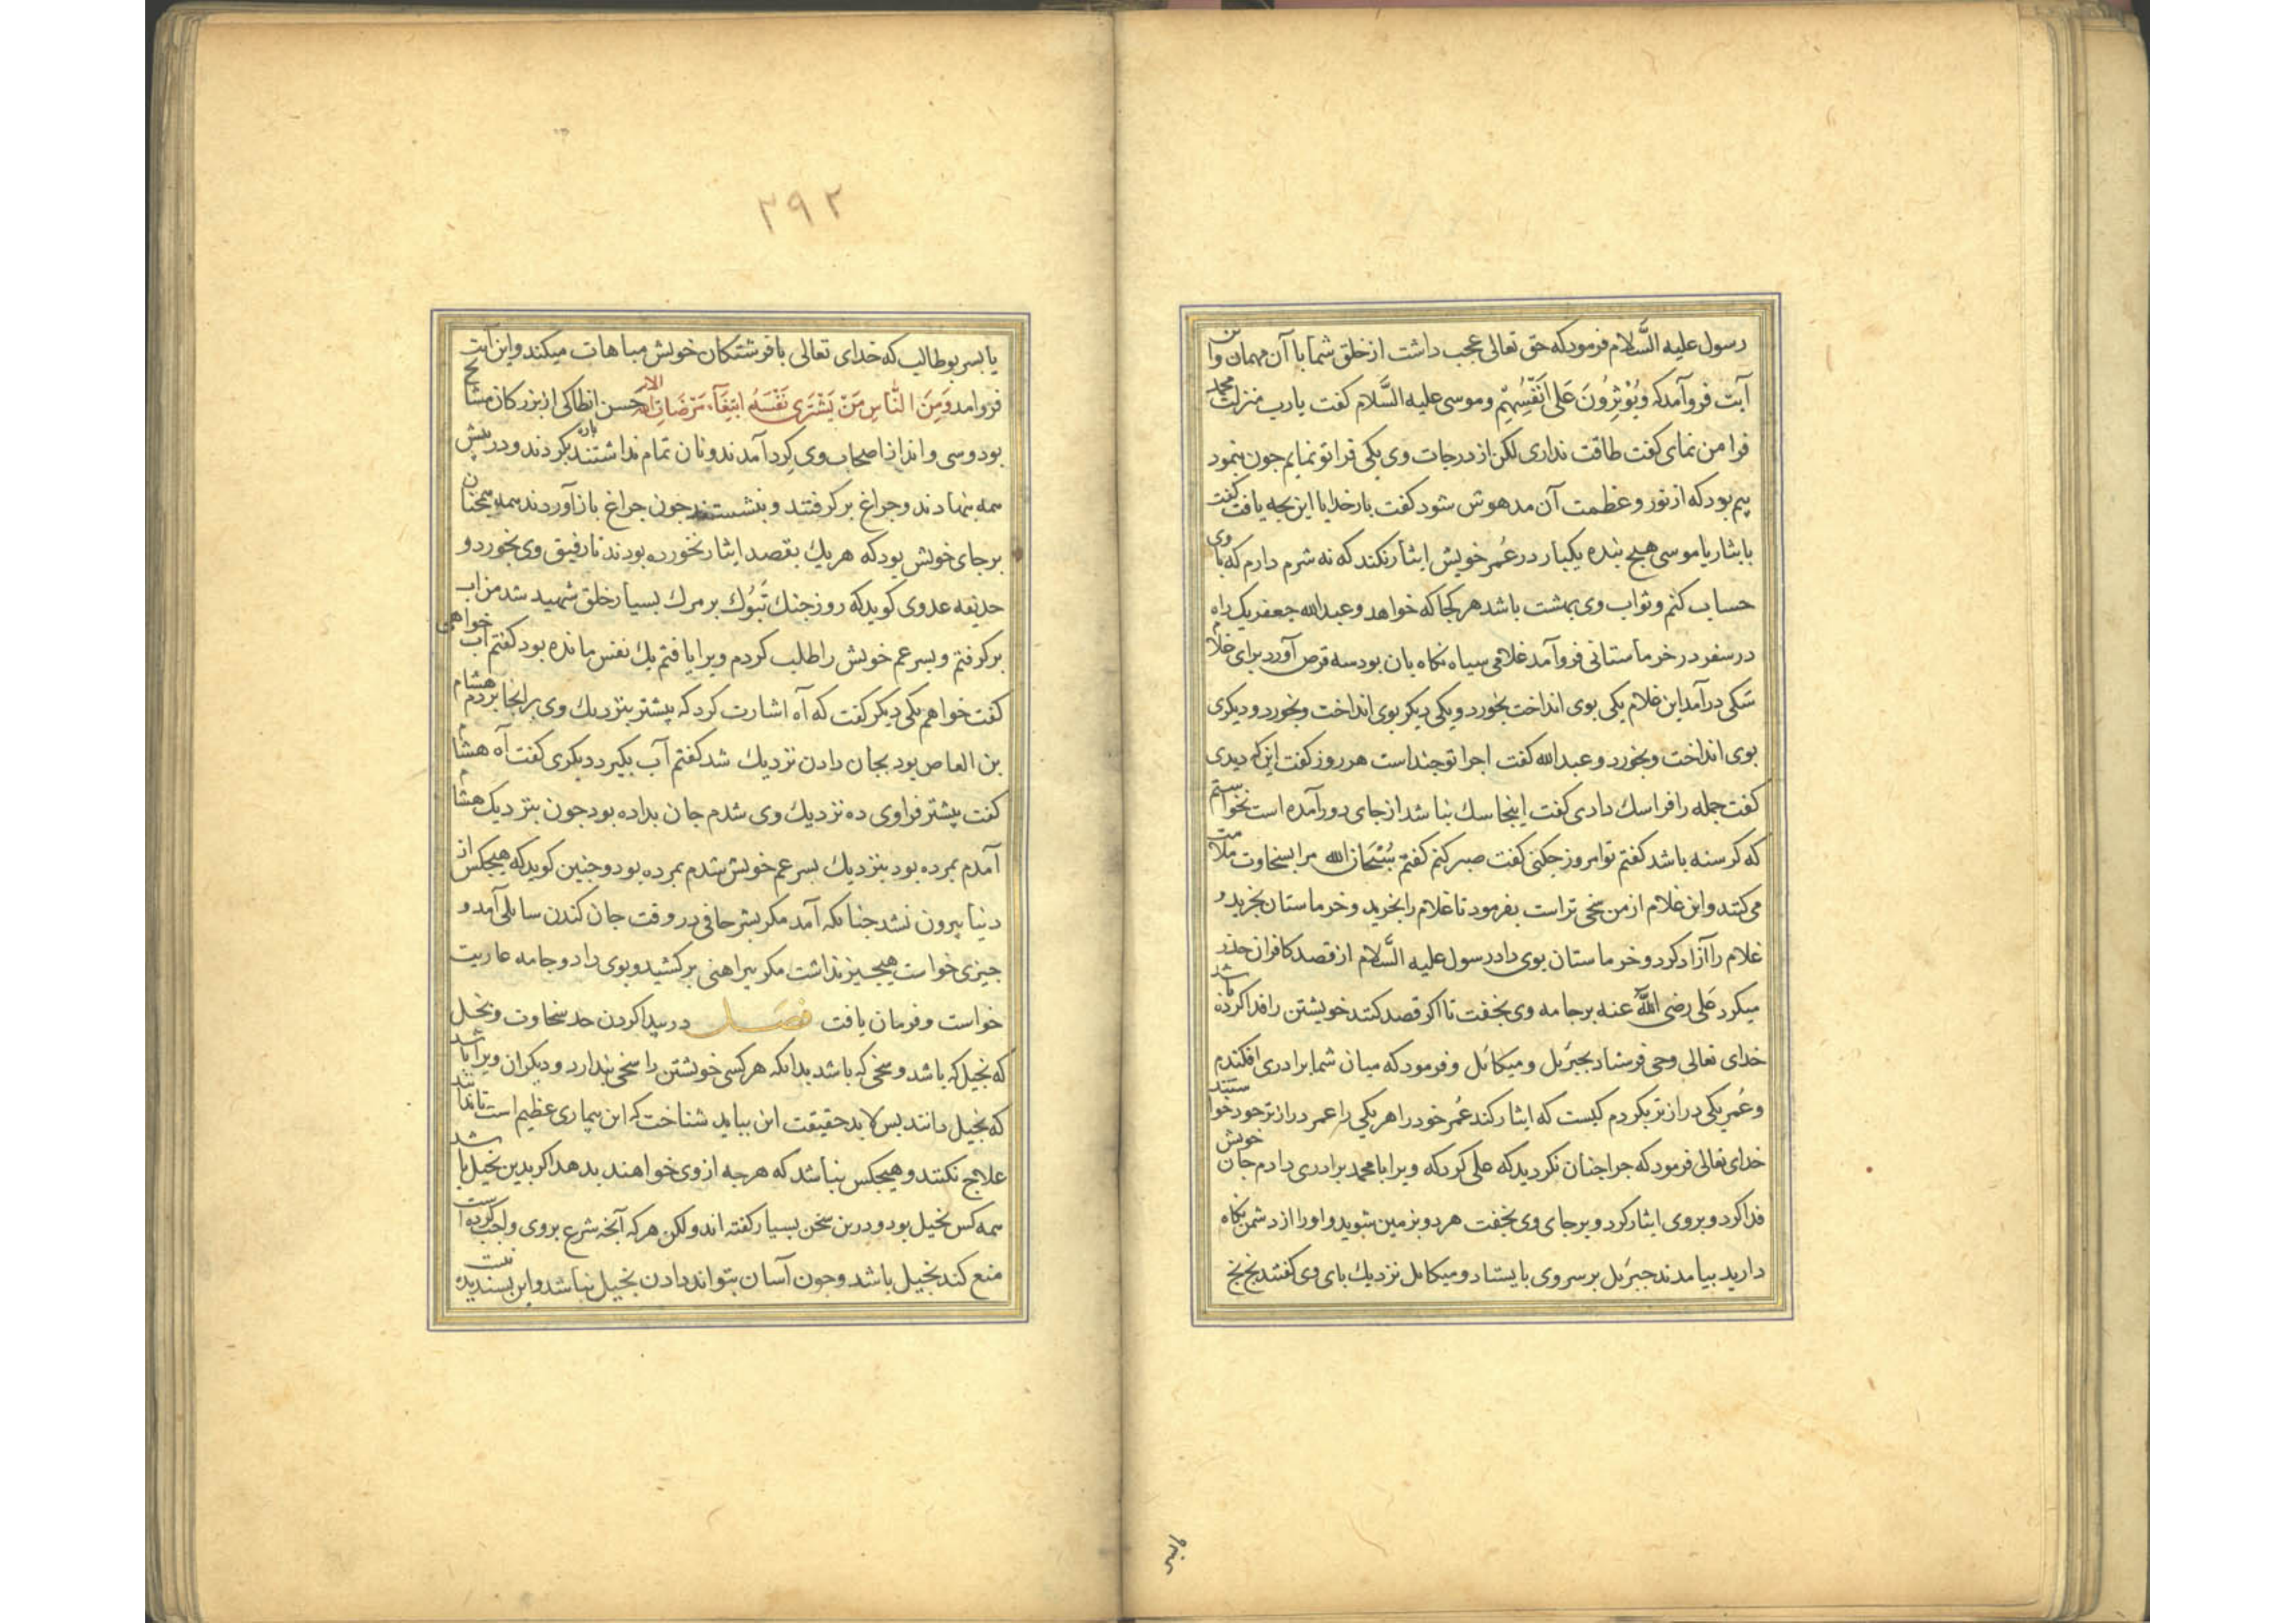 رسول علیه السَّلام فرمود که حق تعالی عجب داشت از خلق شما با آن مهمان و این
آیت فروآمد که وَیُؤْثِرُونَ عَلی اَنْفُسِهِمْ وموسی علیه السَّلام کفت یارب منزلت محمد
فرا من نمای کفت طاقت نداری لکن از درجات وی یکی فرا تو نمایم جون بنمود
بیم بود که از نور و عظمت آن مدهوش شود کفت بارخدایا این بجه یافت کفت
بایثار یا موسی هیچ بنده یکبار در عُمر خویش ایثار نکند که نه شرم دارم که با وی
حساب کنم وثواب وی بهشت باشد هر کجا که خواهد و عبدالله جعفر یک راه
در سفر در خرماستانی فروآمد غلامی سیاه نکاه بان بود سه قرص آورد برای غلام
سَکی درآمد این غلام یکی بوی انداخت بخورد و یکی دیکر بوی انداخت و بخورد و دیکری
بوی انداخت وبخورد و عبدالله کفت اجرا تو جنداست هر روز کفت این که دیدی
کفت جمله را فراسک دادی کفت اینجا سک نباشد از جای دور آمده است نخواستم
که کرسنه باشد کفتم تو امروز جکنی کفت صبر کنم کفتم سُبْحَانَ الله مرا بسخاوت ملامت
می‌کنند واین غلام از من سخی تر است بفرمود تا غلام را بخرید و خرماستان بخرید و
غلام را آزاد کرد و خرماستان بوی داد رسول علیه السَّلام از قصد کافران حذر
میکرد عَلی رضی اللّٰه عنه برجامه وی بخفت تا اکر قصد کنند خویشتن را فدا کرده باشد
خدای تعالی وحی فرستاد بجبرَیل و میکائل و فرمود که میان شما برادری افکندم
وعُمر یکی درازتر بکردم کیست که ایثار کند عُمر خود را هر یکی را عمر درازتر خود خواستند
خدای تعالی فرمود که جرا جنان نکردید که علی کرد که ویرا با محمد برادری دادم جان خویش
فدا کرد و بروی ایثار کرد و برجای وی بخفت هر دو بزمین شوید واورا از دشمن نکاه
دارید بیامدند جبرَیل بر سر وی بایستاد و میکایل نزدیک بای وی کفتند بخ بخ
۲۹۲
یا بسر بوطالب که خدای تعالی با فرشتکان خویش مباهات میکند واین آیت
فروآمد وَمِنَ النَّاسِ مَنْ یَشْتَری نَفْسَهُ ابْتِغَآءَ مَرْضَاتِ الله الایه حسن انطاکی از بزرکان مشایخ
بود وسی واند از اصحاب وی کِرد آمدند ونان تمام نداشتند باره بکردند و در بیش
همه بنهادند و جراغ برکرفتند و بنشستند جون جراغ بازآوردند همه همجنان
برجای خویش بود که هر یک بقصد ایثار نخورده بودند تا رفیق وی بخورد و
حذیفه عدوی کوید که روز جنک تَبُوک بر مرک بسیار خلق شهید شد من آب
برکرفتم و بسر عم خویش را طلب کردم ویرا یافتم یک نفس مانده بود کفتم آب خواهی
کفت خواهم یکی دیکر کفت که آه اشارت کرد که بیشتر بنزدیک وی بر آنجا بردم هشام
بن العاص بود بجان دادن نزدیک شد کفتم آب بکیر دیکری کفت آه هشام
کفت بیشتر فراوی ده نزدیک وی شدم جان بداده بود جون بنزدیک هشام
آمدم بمرده بود بنزدیک بسر عم خویش شدم بمرده بود و جنین کوید که هیجکس از
دنیا بیرون نشد جنانکه آمد مکر بشر حافی در وقت جان کندن سایلی آمد و
جیزی خواست هیجیز نداشت مکر بیراهنی برکشید و بوی داد و جامه عاریت
خواست و فرمان یافت فصــل در بیدا کردن حد سخاوت و بخل
که بخیل که باشد و سخی که باشد بدانکه هر کسی خویشتن را سخی بندارد و دیکران ویرا باشد
که بخیل دانند بس لابد حقیقت این بباید شناخت که این بیماری عظیم است تا ندانند
علاج نکنند و هیجکس نباشد که هرجه از وی خواهند بدهد اکر بدین بخیل باشد
همه کس بخیل بود و درین سخن بسیار کفته اند ولکن هر که آنجه شرع بر وی واجب کرده است
منع کند بخیل باشد و جون آسان بتواند دادن بخیل نباشد واین بسندیده نیست